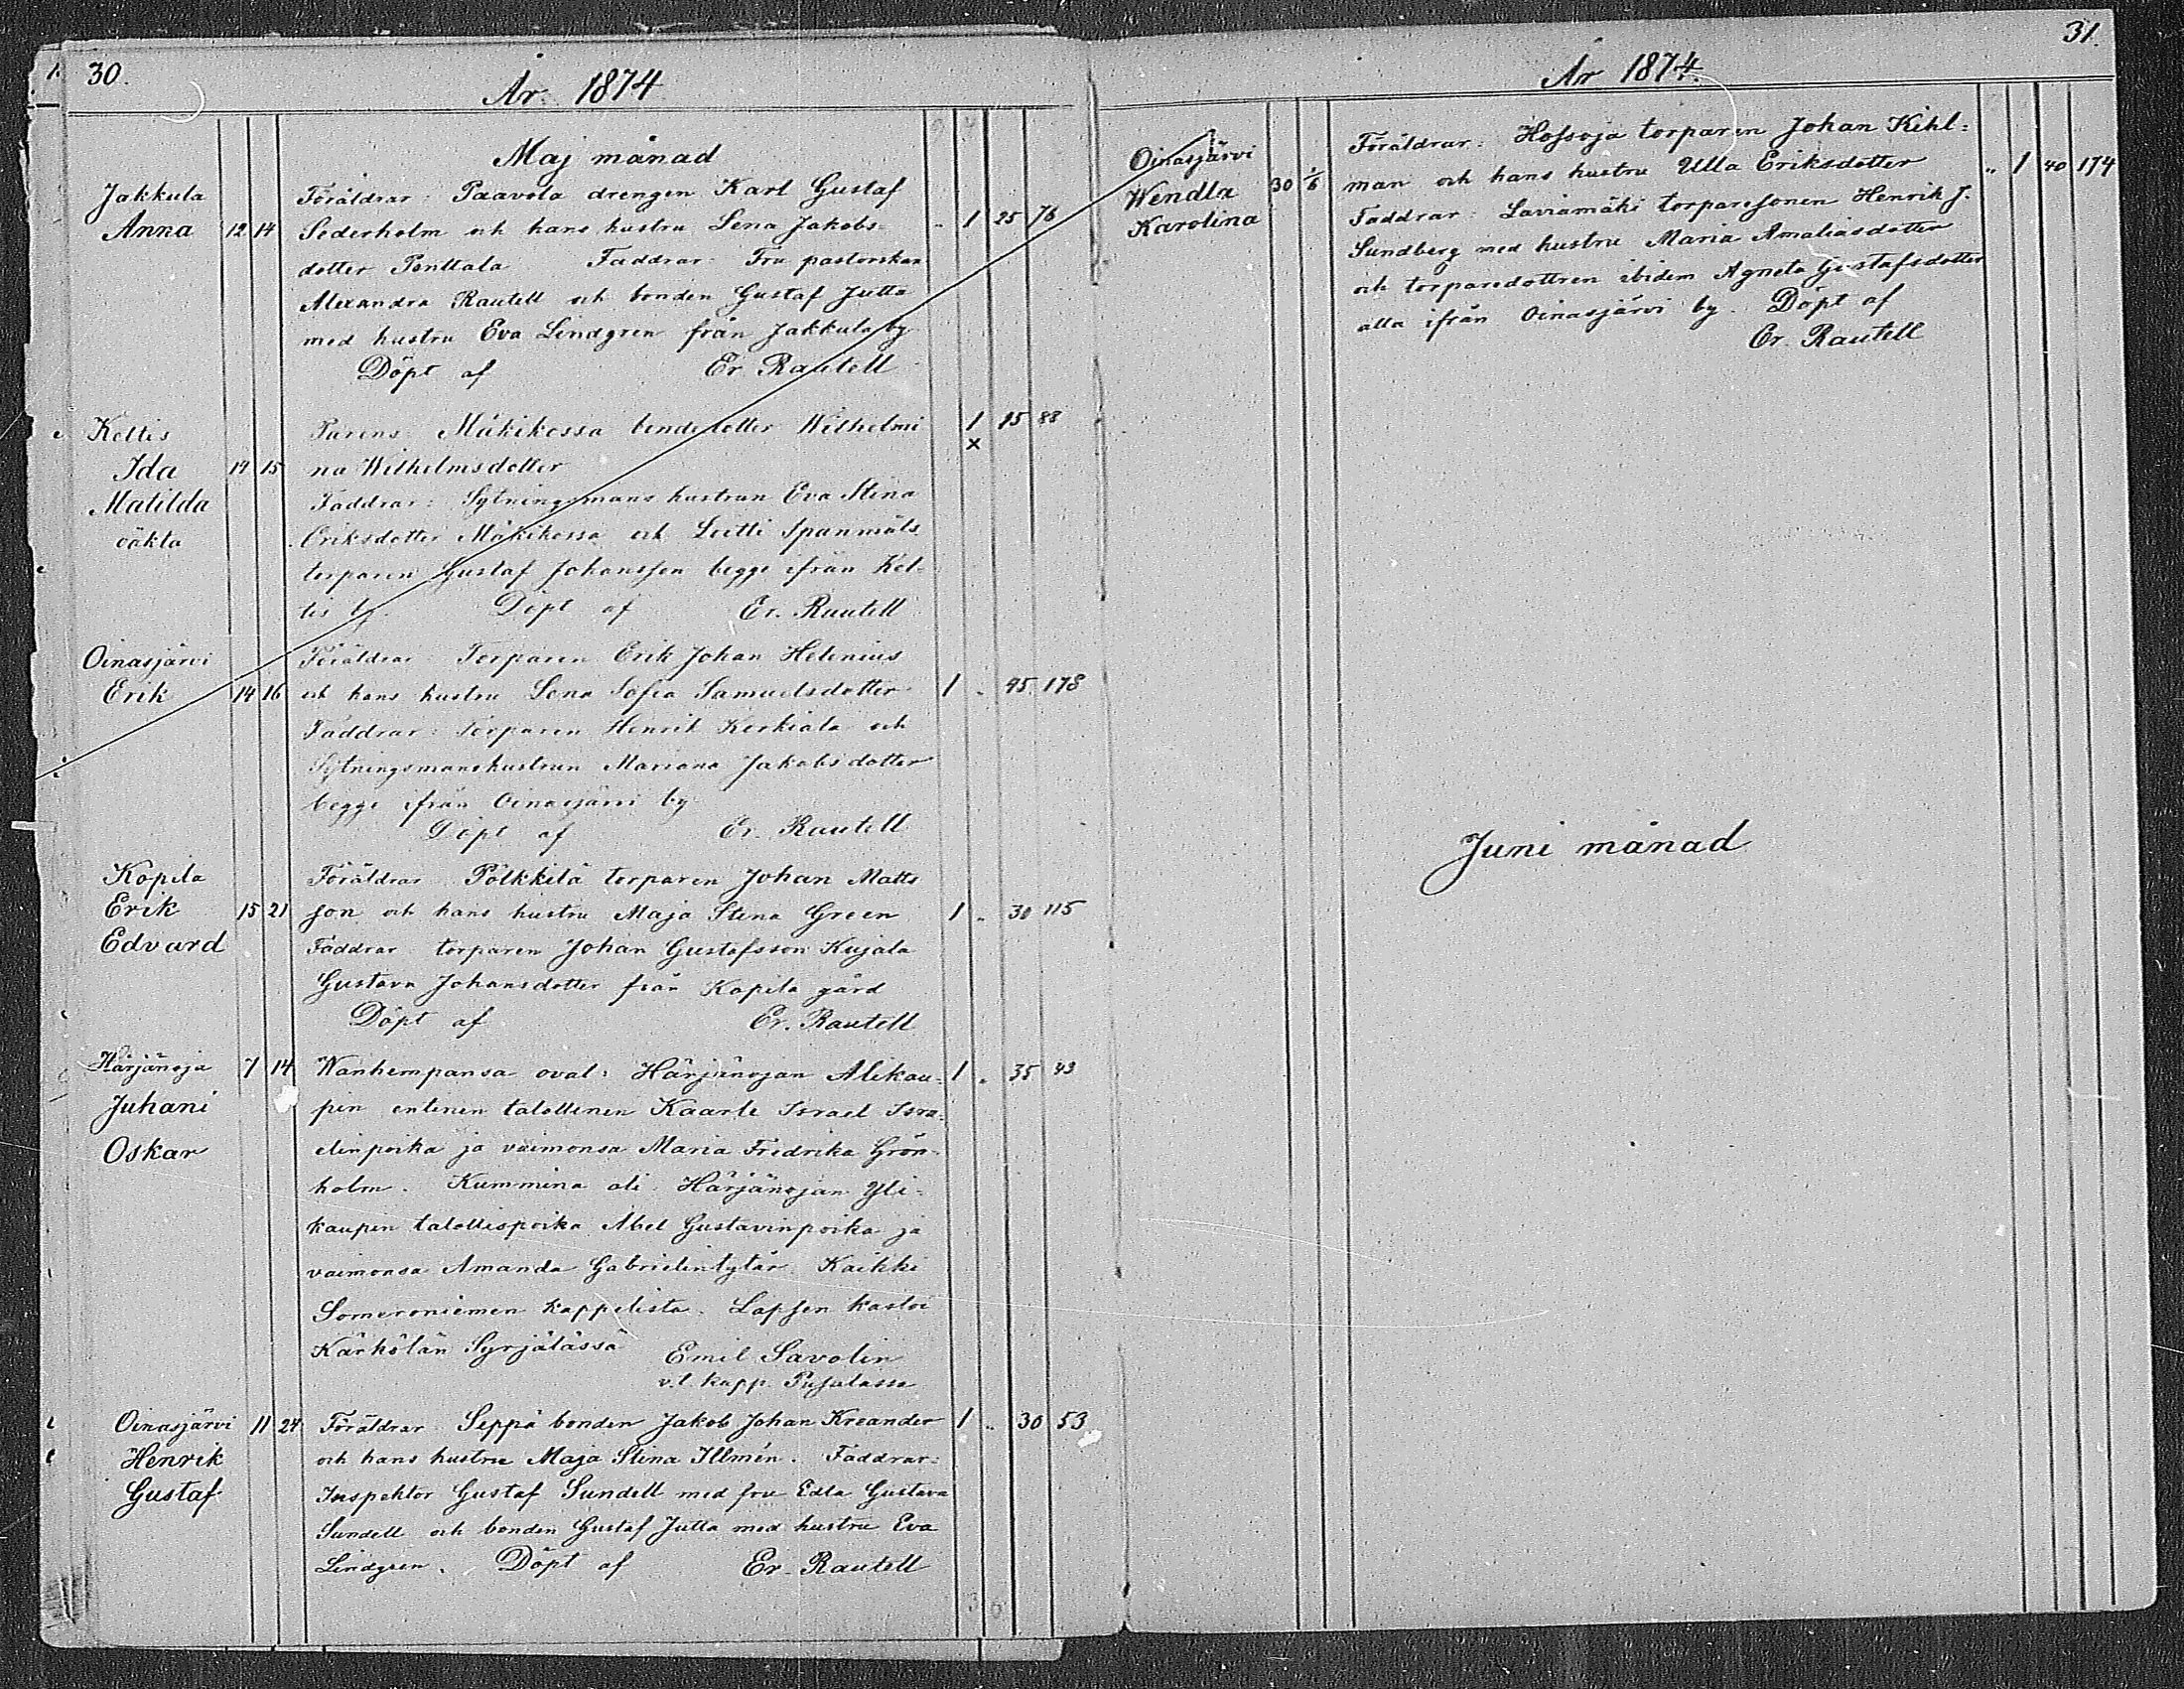 30.
År 1874
Maj månad
Jakkula
Anna 12 14
Föräldrar: Paavola drengen Karl Gustaf
Sederholm och hans hustru Lena Jakobs- " 1 25 76
dotter Penttala Faddrar: Fru pastorskan
Alexandra Rautell och bonden Gustaf Jutta
med hustru Eva Lindgren från Jakkula by
Döpt af Er. Rautell
Keltis
Ida 17 15
Matilda
oäkta
Parens: Mäkikossa bondedotter Wilhelmi 1 25 88
na Wilhelmsdotter x
Faddrar: Sytningsmans hustrun Eva Stina
Eriksdotter Mäkikossa och Lutti Spanmäls
torparen Gustaf Johansson begge ifrån Kel-
tis by. Döpt af Er. Rautell
Oinasjärvi
Erik 14 16
Föräldrar: Torparen Erik Johan Helenius
och hans hustru Lena Sofia Samuelsdotter 1 " 45 178
Faddrar: torparen Henrik Kerkiala och
Sytningsmanshustrun Mariana Jakobsdotter
begge ifrån Oinasjärvi by
Döpt af Er. Rautell
Kopila
Erik 15 21
Edvard
Föräldrar: Pölkkilä torparen Johan Matts
son och hans hustru Maja Stina Green 1 " 30 115
Faddrar: torparen Johan Gustafsson Kujala
Gustava Johansdotter från Kopila gård
Döpt af Er. Rautell
Härjänoja 7 14
Juhani
Oskar
Wanhempansa ovat: Härjänojan Alikau- 1 " 35 43
pin entinen talollinen Kaarle Israel Isra-
elinpoika ja vaimonsa Maria Fredrika Grön-
holm. Kummina oli Härjänojan Yli-
kaupin talollispoika Abel Gustavinpoika ja
vaimonsa Amanda Gabrielintytär. Kaikki
Someroniemen kappelista. Lapsen kastoi
Kärkölän Syrjälässä Emil Savolin
v.t. kapp. Pusulassa
Oinasjärvi 11 24
Henrik
Gustaf
Föräldrar: Seppä bonden Jakob Johan Kreander 1 " 30 53
och hans hustru Maja Stina Illmén. Faddrar:
Inspektor Gustaf Sundell med fru Edla Gustava
Sundell och bonden Gustaf Jutta med hustru Eva
Lindgren. Döpt af Er. Rautell
31.
År 1874.
Oinasjärvi
Wendla 30 1/6
Karolina
Föräldrar: Hossoja torparen Johan Kihl-
man och hans hustru Ulla Eriksdotter " 1 40 174
Faddrar: Laviamäki torparesonen Henrik J.
Sundberg med hustru Maria Amaliasdotter
och torparedottren ibidem Agneta Gustafsdotter
alla ifrån Oinasjärvi by. Döpt af
Er. Rautell
Juni månad